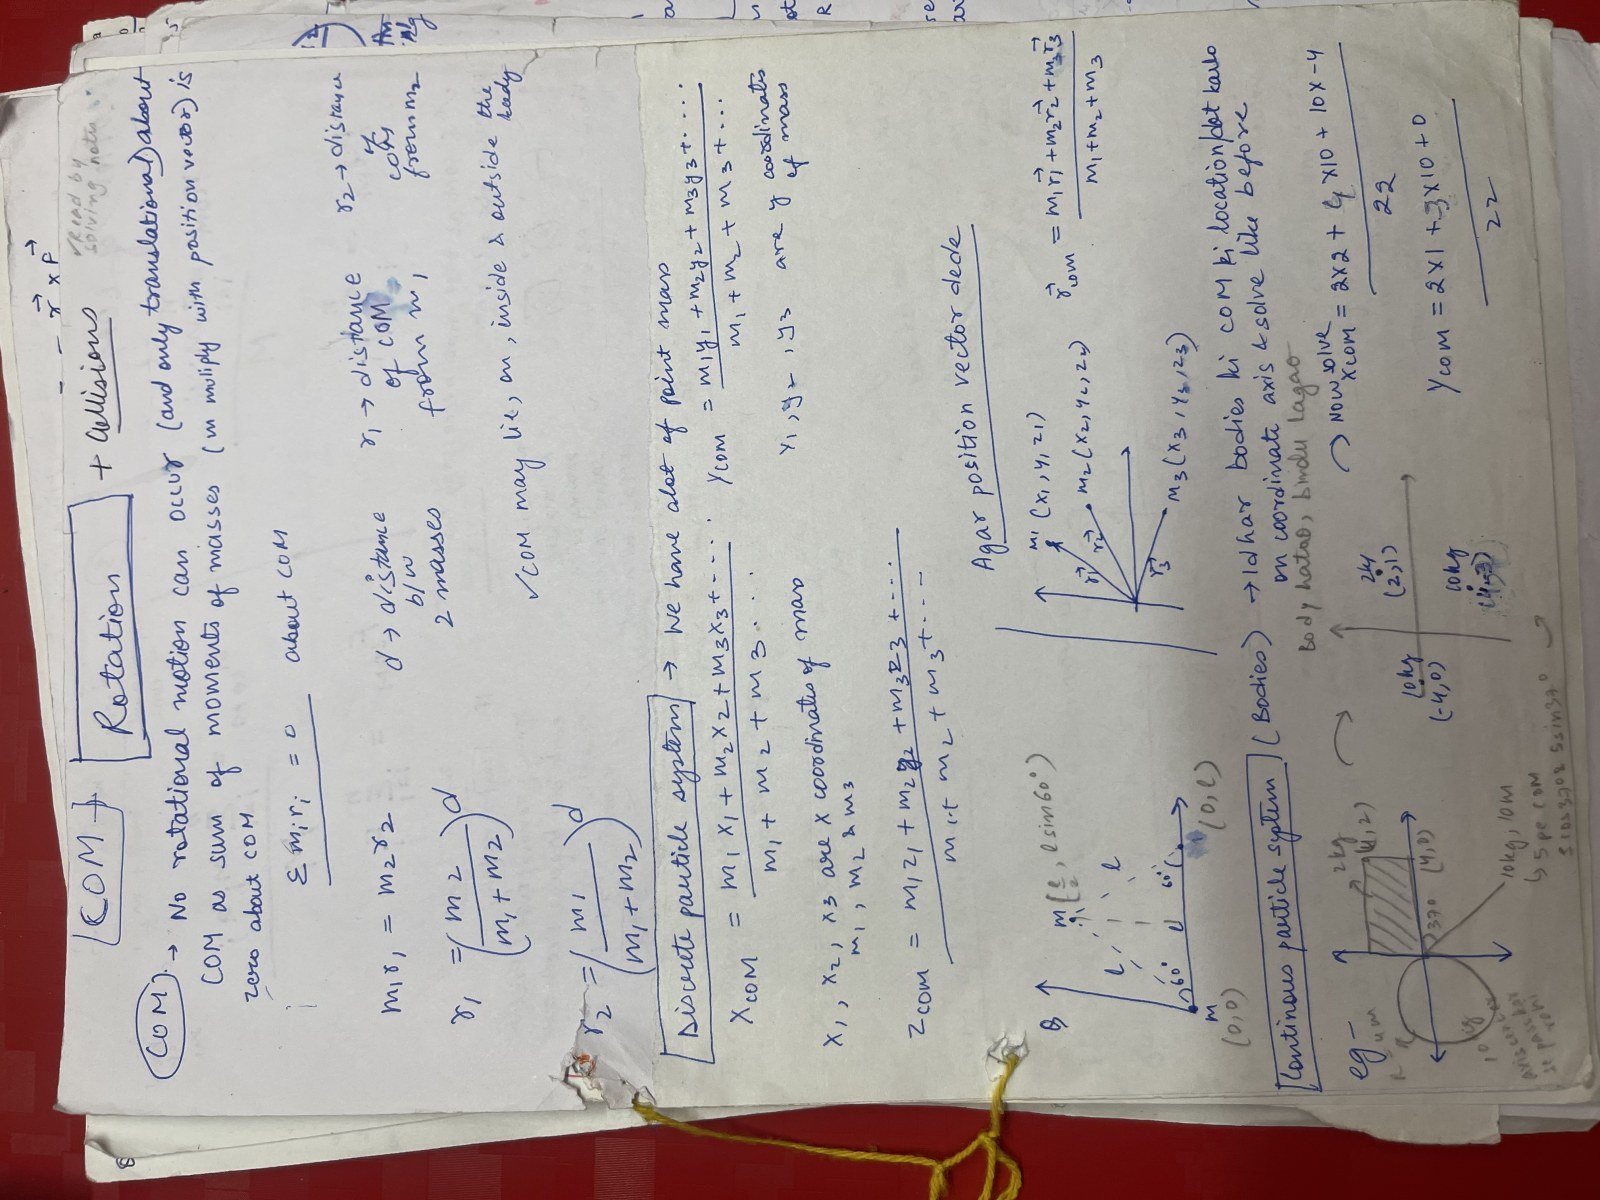 r⃗ x P⃗
COM + Rotation + Collisions
✓Read by solving notes
COM → No rotational motion can occur (and only translational) about
COM as sum of moments of masses (m multiply with position vector) is
zero about COM
Σ miri = 0 about COM
m1r1 = m2r2
d → distance b/w 2 masses
r1 → distance of COM from m1
r2 → distance of COM from m2
r1 = (m2 / (m1 + m2)) d
r2 = (m1 / (m1 + m2)) d
✓COM may lie, on, inside & outside the body
Discrete particle system → We have alot of point mass
XCOM = m1x1 + m2x2 + m3x3 + .... / m1 + m2 + m3 ...
YCOM = m1y1 + m2y2 + m3y3 + .... / m1 + m2 + m3 + ...
x1, x2, x3 are x coordinates of mass
m1, m2 & m3
y1, y2, y3 are y coordinates of mass
ZCOM = m1z1 + m2z2 + m3z3 + .... / m1 + m2 + m3 + ....
Agar position vector dede
Q
m (l/2, l sin60°)
l
l
60°
l
60°
m
(0,0)
(0,l)
m1 (x1, y1, z1)
m2 (x2, y2, z2)
m3 (x3, y3, z3)
r⃗1
r⃗2
r⃗3
r⃗com = m1r⃗1 + m2r⃗2 + m3r⃗3 / m1 + m2 + m3
Continous particle system (Bodies) → Idhar bodies ki COM ki location/dot karo
on coordinate axis & solve like before
Body hatao, bindu lagao
eg -
2kg
(4,2)
(4,0)
37°
10kg
10kg, 10m
↳ 5 pe COM
5cos37° 5sin37°
2kg
(2,1)
10kg
(-4,0)
10kg
(4,-3)
Now solve
XCOM = 2x2 + 4x10 + 10x-4 / 22
YCOM = 2x1 + -3x10 + 0 / 22